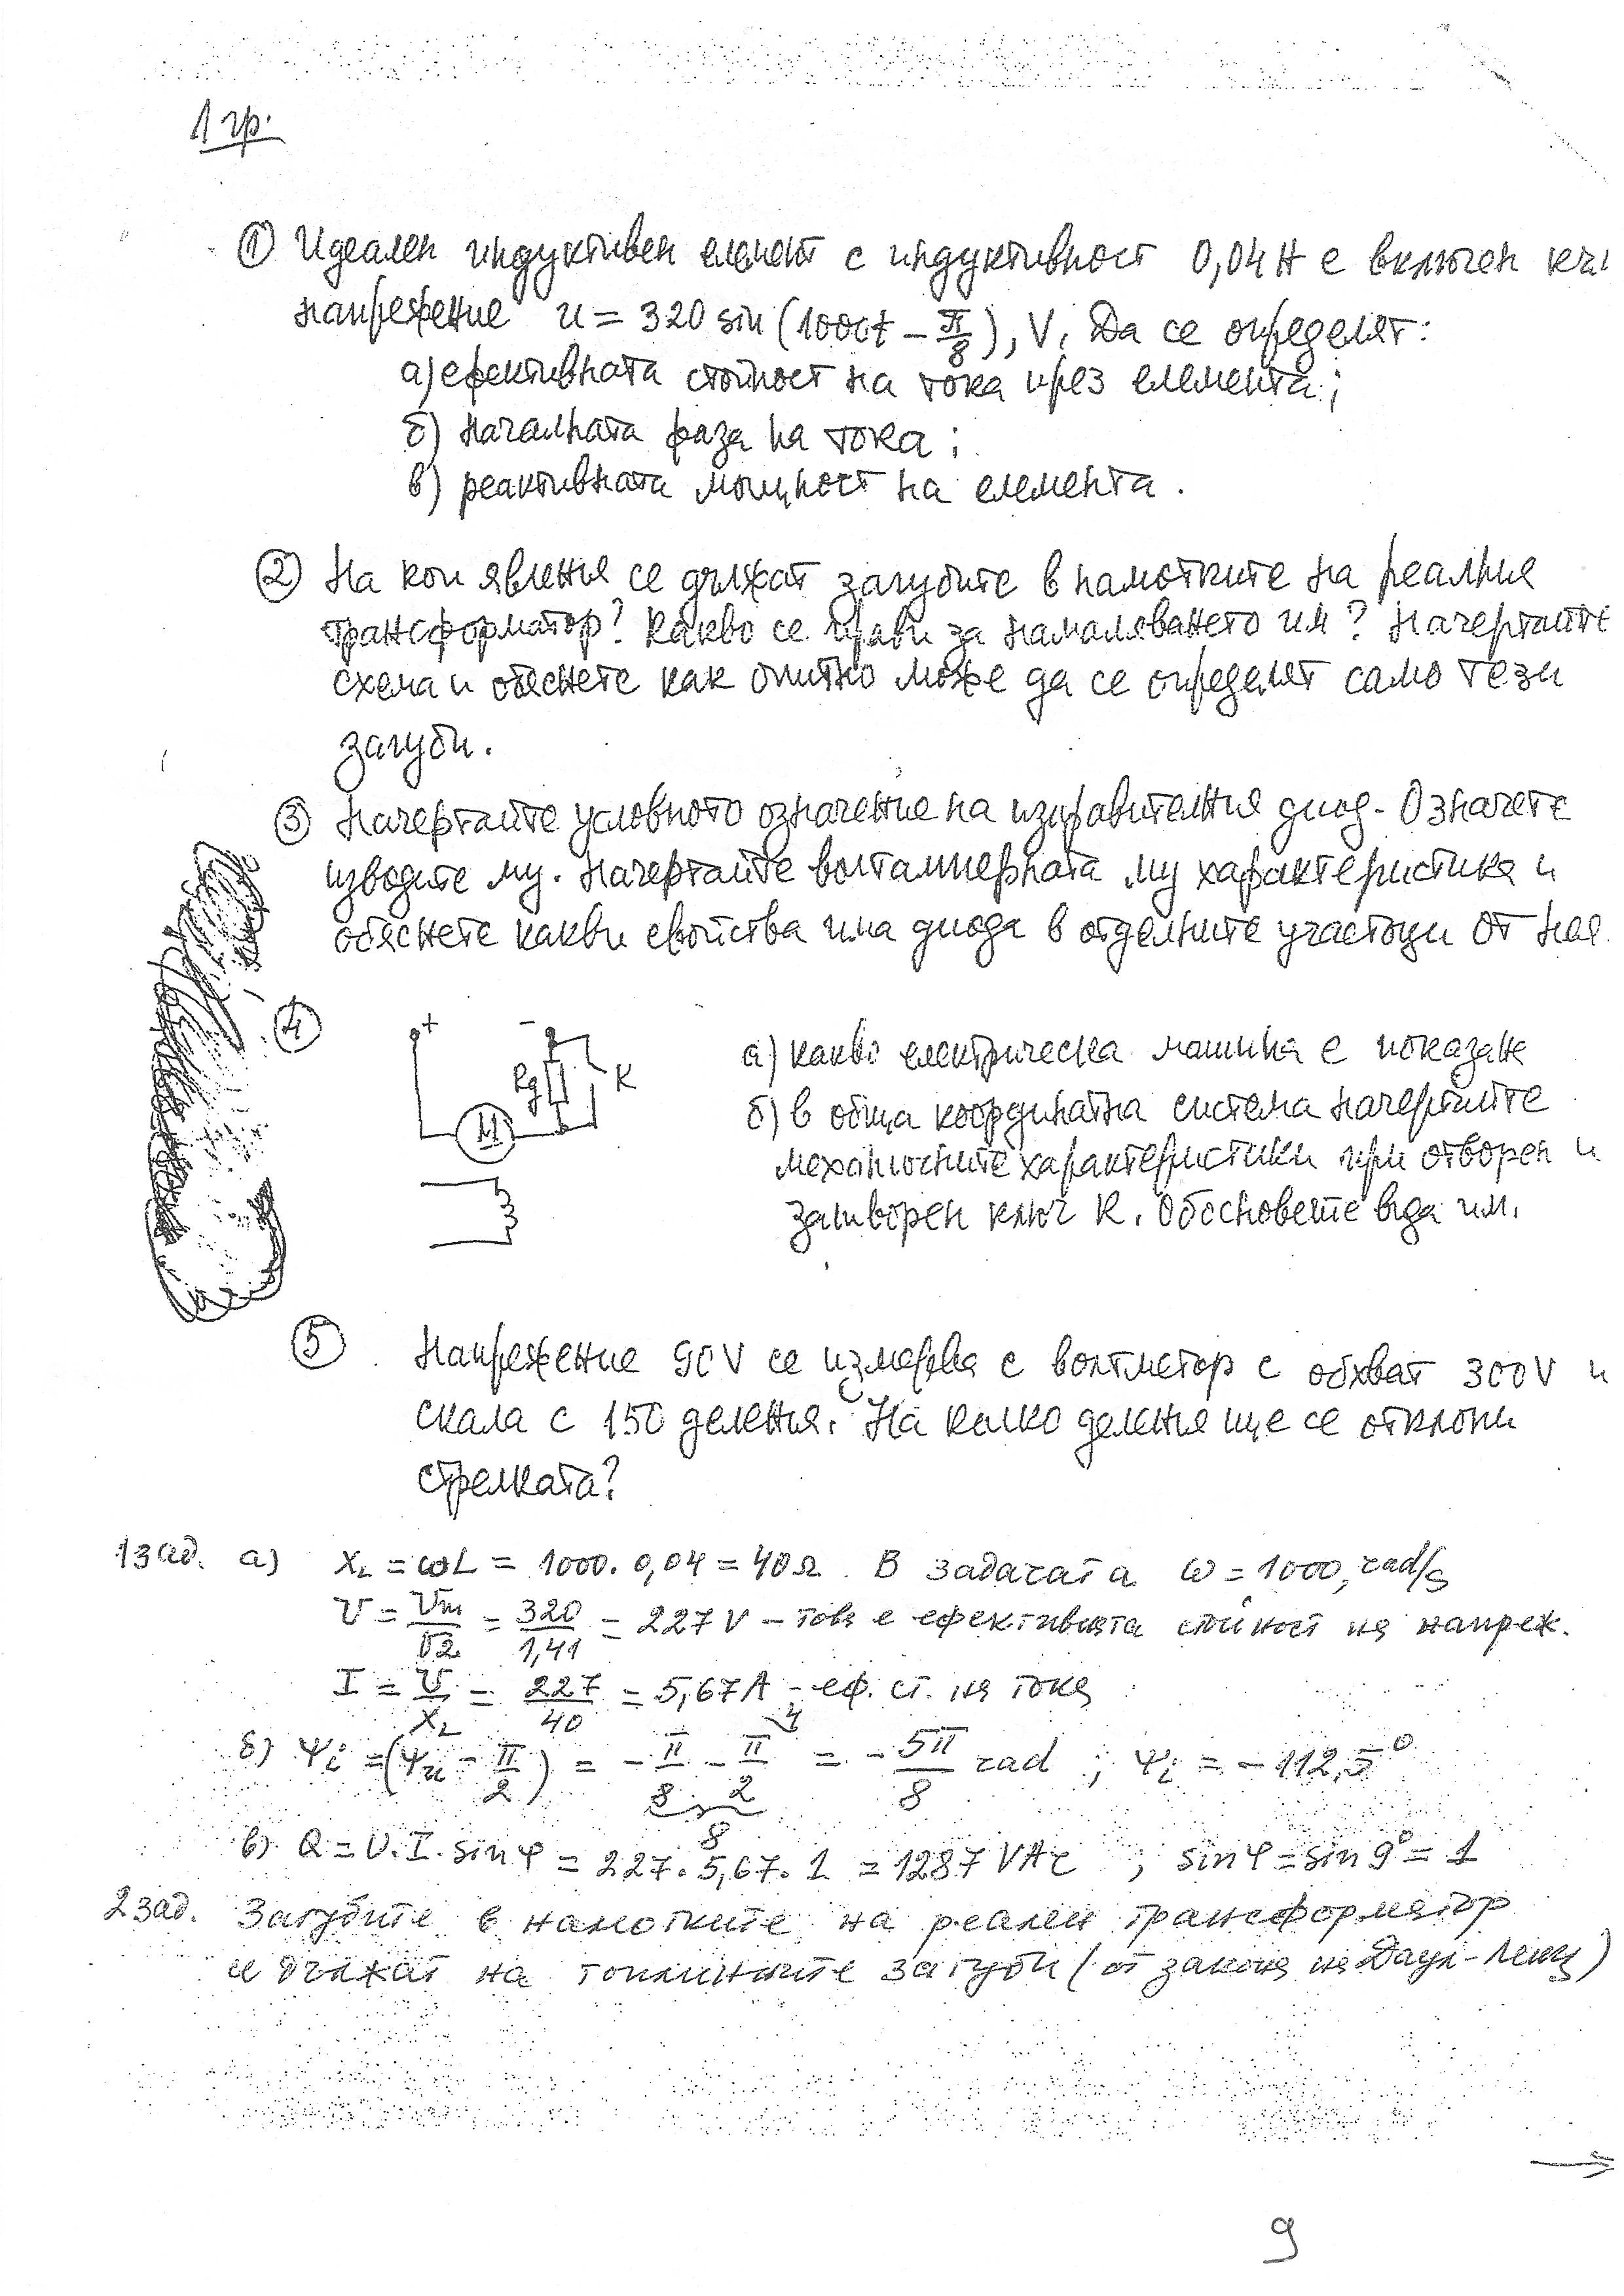 1 гр.
① Идеален индуктивен елемент с индуктивност 0,04 H е включен към
напрежение u = 320 sin (1000t - π/8), V. Да се определят:
а) ефективната стойност на тока през елемента;
б) началната фаза на тока;
в) реактивната мощност на елемента.
② На кои явления се дължат загубите в намотките на реалния
трансформатор? Какво се прави за намаляването им? Начертайте
схема и обяснете как опитно може да се определят само тези
загуби.
③ Начертайте условното означение на изправителния диод. Означете
изводите му. Начертайте волтамперната му характеристика и
обяснете какви свойства има диода в отделните участъци от нея.
④
+ -
Rg K
M
а) какво електрическа машина е показана
б) в обща координатна система начертайте
механичните характеристики при отворен и
затворен ключ K. Обосновете вида им.
⑤ Напрежение 90V се измерва с волтметър с обхват 300V и
скала с 150 деления. На колко деления ще се отклони
стрелката?
1 зад. а) X_L = ωL = 1000. 0,04 = 40Ω. В задачата ω = 1000, rad/s
U = Um/√2 = 320/1,41 = 227 V - това е ефективната стойност на напреж.
I = U/X_L = 227/40 = 5,67A - еф. ст. на тока
б) Ψi = (Ψu - π/2) = - π/8 - π/2 = - 5π/8 rad ; Ψi = - 112,5°
в) Q = U.I.sinφ = 227. 5,67. 1 = 1287 VAr ; sinφ = sin 9° = 1
2 зад. Загубите в намотките на реален трансформатор
се дължат на топлинните загуби (от закона на Джаул-Ленц)
→
9